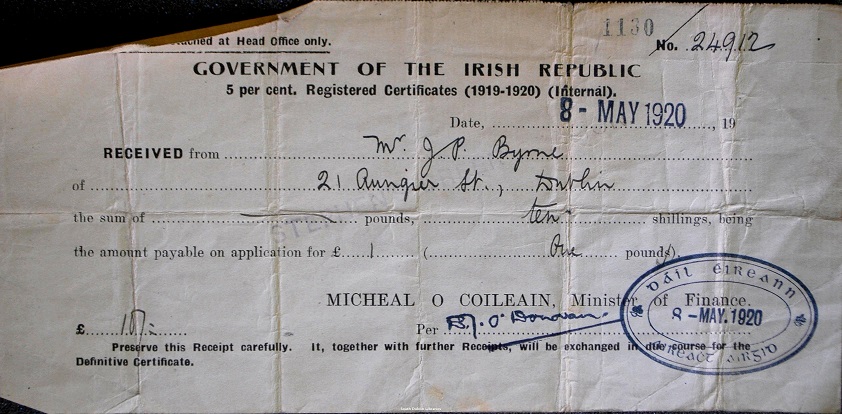 attached at Head Office only.
1130
No. 24912
GOVERNMENT OF THE IRISH REPUBLIC
5 per cent. Registered Certificates (1919-1920) (Internal).
Date, 8 - MAY 1920, 19
RECEIVED from Mr J P. Byrne
of 21 Aungier St., Dublin
the sum of pounds, ten shillings, being
the amount payable on application for £ 1 ( One pounds).
MICHEAL O COILEAIN, Minister of Finance.
£ Per O'Donovan
DÁIL ÉIREANN
8 - MAY. 1920
AIRGID
Preserve this Receipt carefully. It, together with further Receipts, will be exchanged in due course for the
Definitive Certificate.